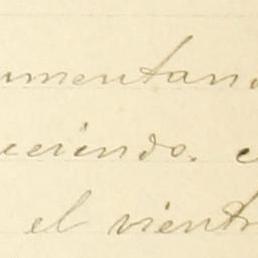 umentand
eciendo. e
el vientr